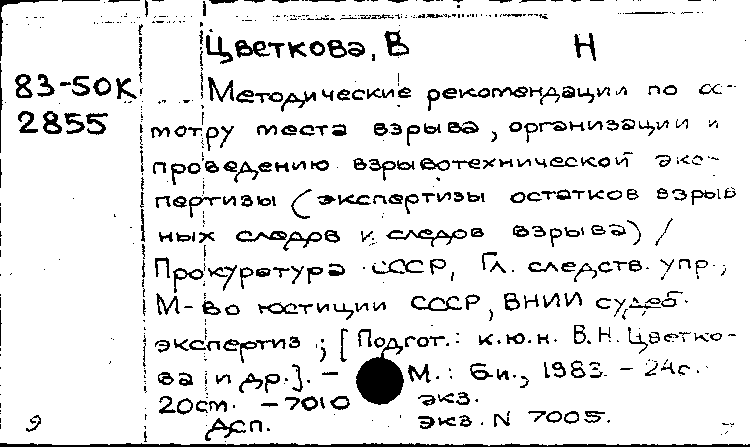 Цветкова, В Н
83-50К
2855
Методические рекомендации по ос-
мотру места взрыва, организации и
проведению взрывотехнической экс-
пертизы (экспертизы остатков взрыв
ных следов и следов взрыва) /
Прокуратура СССР, Гл. следств. упр.,
М-во юстиции СССР, ВНИИ судеб.
экспертиз ; [Подгот.: к.ю.н. В.Н. Цветко-
ва и др.]. - М.: б.и., 1983. - 24с.
20см. - 7010 экз.
9 дсп. экз. N 7005.